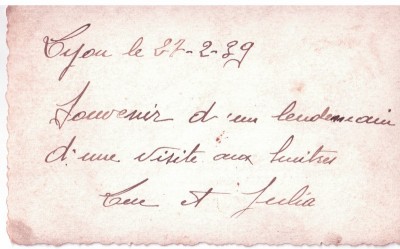 Lyon le 27-2-39
Souvenir d'un lendemain
d'une visite aux huitres
et Julia